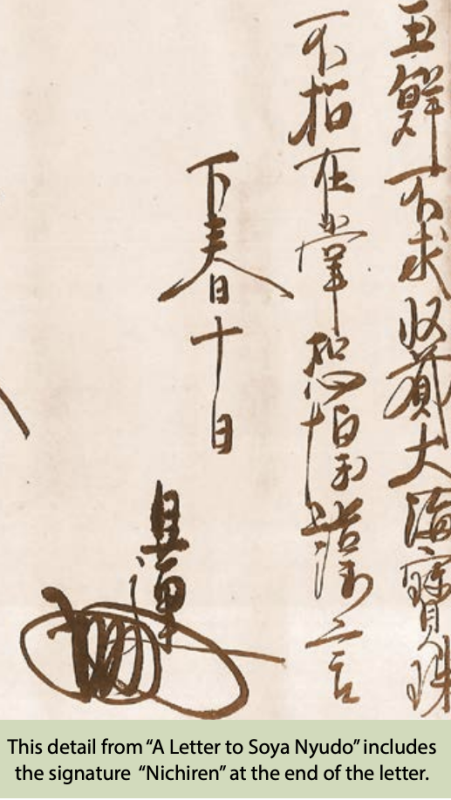 玉鮮不求収蔵大海寳珠
不招在掌恐惶謹言
下春十日
日蓮
This detail from “A Letter to Soya Nyudo” includes
the signature “Nichiren” at the end of the letter.